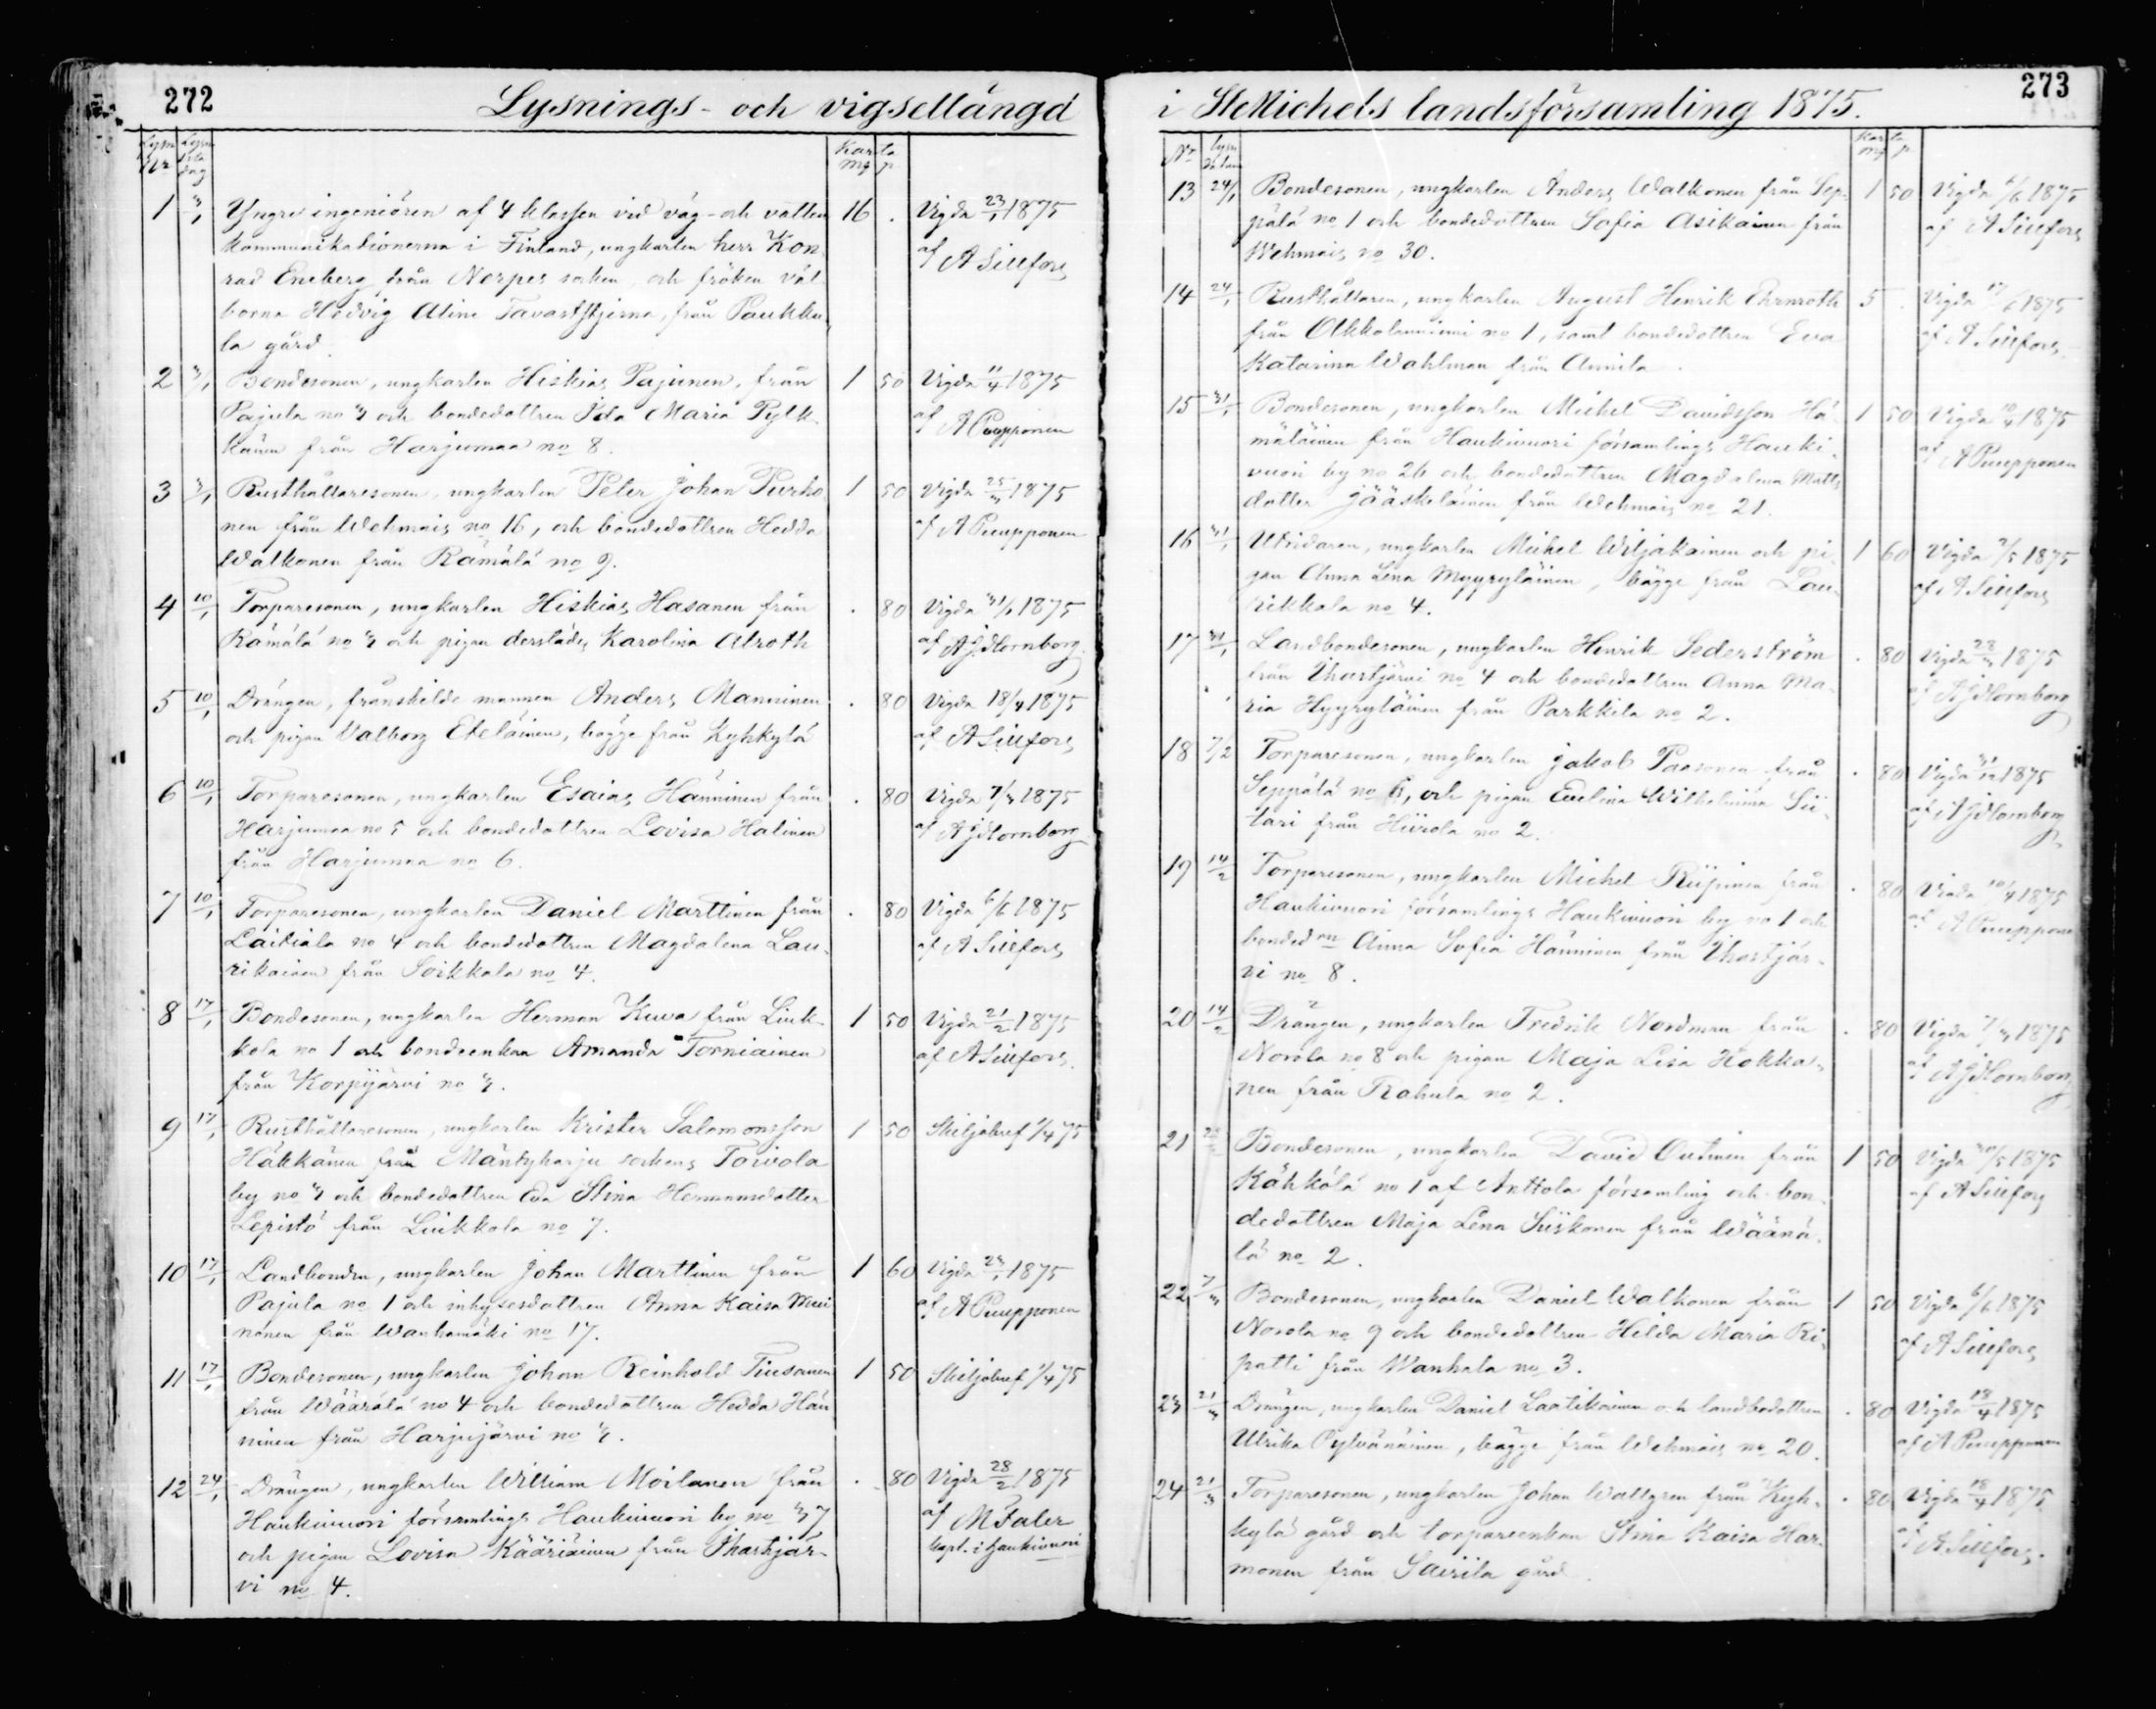 272
Lysnings- och vigsellängd
Lysn Lysn
Nr dag
Karta
mk p
1 3/1 Yngre ingeniören af 4 klassen vid väg- och vatten 16 . Vigda 23/1 1875
kommunikationerna i Finland, ungkarlen herr Kon af A Sillfors
rad Eneberg från Nerpes socken, och fröken väl
borna Hedvig Aline Tavaststjerna, från Paukku
la gård.
2 3/1 Bondesonen, ungkarlen Hiskias Pajunen, från 1 50 Vigda 11/4 1875
Pajula no 3 och bondedottren Ida Maria Pylk af A Puupponen
känen från Harjumaa no 8.
3 3/1 Rusthållaresonen, ungkarlen Peter Johan Purho 1 50 Vigda 25/3 1875
nen från Wehmais no 16, och bondedottren Hedda af A Puupponen
Walkonen från Rämälä no 9.
4 10/1 Torparesonen, ungkarlen Hiskias Hasanen från . 80 Vigda 31/1 1875
Rämälä no 3 och pigan derstädes Karolina Alroth af A J Hornborg
5 10/1 Drängen, frånskilde mannen Anders Manninen . 80 Vigda 18/4 1875
och pigan Valborg Eteläinen, bägge från Kyhkylä af A Sillfors
6 10/1 Torparesonen, ungkarlen Esaias Hänninen från . 80 Vigda 7/3 1875
Harjumaa no 5 och bondedottren Lovisa Halinen af A J Hornborg
från Harjumaa no 6.
7 10/1 Torparesonen, ungkarlen Daniel Marttinen från . 80 Vigda 6/6 1875
Laitiala no 4 och bondedottren Magdalena Lau- af A Sillfors
rikainen från Soikkala no 4.
8 17/1 Bondesonen, ungkarlen Herman Kuva från Liuk- 1 50 Vigda 21/2 1875
kola no 1 och bondeenkan Amanda Torniainen af A Sillfors.
från Korpijärvi no 3.
9 17/1 Rusthållaresonen, ungkarlen Krister Salomonsson 1 50 Skiljobref 1/4 75
Häkkänen från Mäntyharju sockens Toivola
by no 3 och bondedottren Eva Stina Hermansdotter
Lepistö från Liukkola no 7.
10 17/1 Landbonden, ungkarlen Johan Marttinen från 1 60 Vigda 24/1 1875
Pajula no 1 och inhysesdottren Anna Kaisa Mui af A Puupponen
nonen från Wanhamäki no 17.
11 17/1 Bondesonen, ungkarlen Johan Reinhold Tiusanen 1 50 Skiljobref 1/4 75
från Wäärälä no 4 och bondedottren Hedda Hän
ninen från Harjujärvi no 3.
12 24/1 Drängen, ungkarlen William Moilanen från . 80 Vigda 28/2 1875
Haukivuori församlings Haukivuori by no 37 af M Faler
och pigan Lovisa Kääriäinen från Ihastjär- kapl. i Haukivuori
vi no 4.
273
i St Michels landsförsamling 1875.
Nr Lysn
datum
Karta
mk p
13 24/1 Bondesonen, ungkarlen Anders Walkonen från Sep- 1 50 Vigda 6/6 1875
pälä no 1 och bondedottren Sofia Asikainen från af A Sillfors
Wehmais no 30.
14 24/1 Rusthållaren, ungkarlen August Henrik Ehrnrooth 5 . Vigda 17/6 1875
från Olkkolanniemi no 1, samt bondedottren Eva af A Sillfors
Katarina Wahlman från Annila.
15 31/1 Bondesonen, ungkarlen Michel Davidsson Hä- 1 50 Vigda 10/4 1875
mäläinen från Haukivuori församlings Hauki- af A Puupponen
vuori by no 26 och bondedottren Magdalena Matts
dotter Jääskeläinen från Wehmais no 21.
16 31/1 Utridaren, ungkarlen Michel Wiljakainen och pi- 1 60 Vigda 2/5 1875
gan Anna Lena Myyryläinen, bägge från Lau- af A Sillfors
rikkala no 4.
17 31/1 Landbondesonen, ungkarlen Henrik Sederström . 80 Vigda 28/3 1875
från Ihastjärvi no 4 och bondedottren Anna Ma- af A J Hornborg
ria Hyyryläinen från Parkkila no 2.
18 7/2 Torparesonen, ungkarlen Jakob Paasonen från . 80 Vigda 1875
Seppälä no 6, och pigan Evelina Wilhelmina Sii- af A J Hornborg
tari från Hiirola no 2.
19 14/2 Torparesonen, ungkarlen Michel Riipinen från . 80 Vigda 10/4 1875
Haukivuori församlings Haukivuori by no 1 och af A Puupponen
bonded:n Anna Sofia Hänninen från Ihastjär-
vi no 8.
20 14/2 Drängen, ungkarlen Fredrik Nordman från . 80 Vigda 7/3 1875
Norola no 8 och pigan Maja Lisa Hokka- af A J Hornborg
nen från Rahula no 2.
21 Bondesonen, ungkarlen David Outinen från 1 50 Vigda 30/5 1875
Kähkölä no 1 af Anttola församling och bon- af A Sillfors
dedottren Maja Lena Siiskonen från Wäänä-
lä no 2.
22 7/3 Bondesonen, ungkarlen Daniel Walkonen från 1 50 Vigda 6/6 1875
Norola no 9 och bondedottren Hilda Maria Ri- af A Sillfors
patti från Wanhala no 3.
23 21/3 Drängen, ungkarlen Daniel Laatikainen och landbodottren . 80 Vigda 18/4 1875
Ulrika Pylvänäinen, bägge från Wehmais no 20. af A Puupponen
24 21/3 Torparesonen, ungkarlen Johan Wallgren från Kyh- . 80 Vigda 18/4 1875
kylä gård och torpareenkan Stina Kaisa Har- af A Sillfors.
monen från Sairila gård.